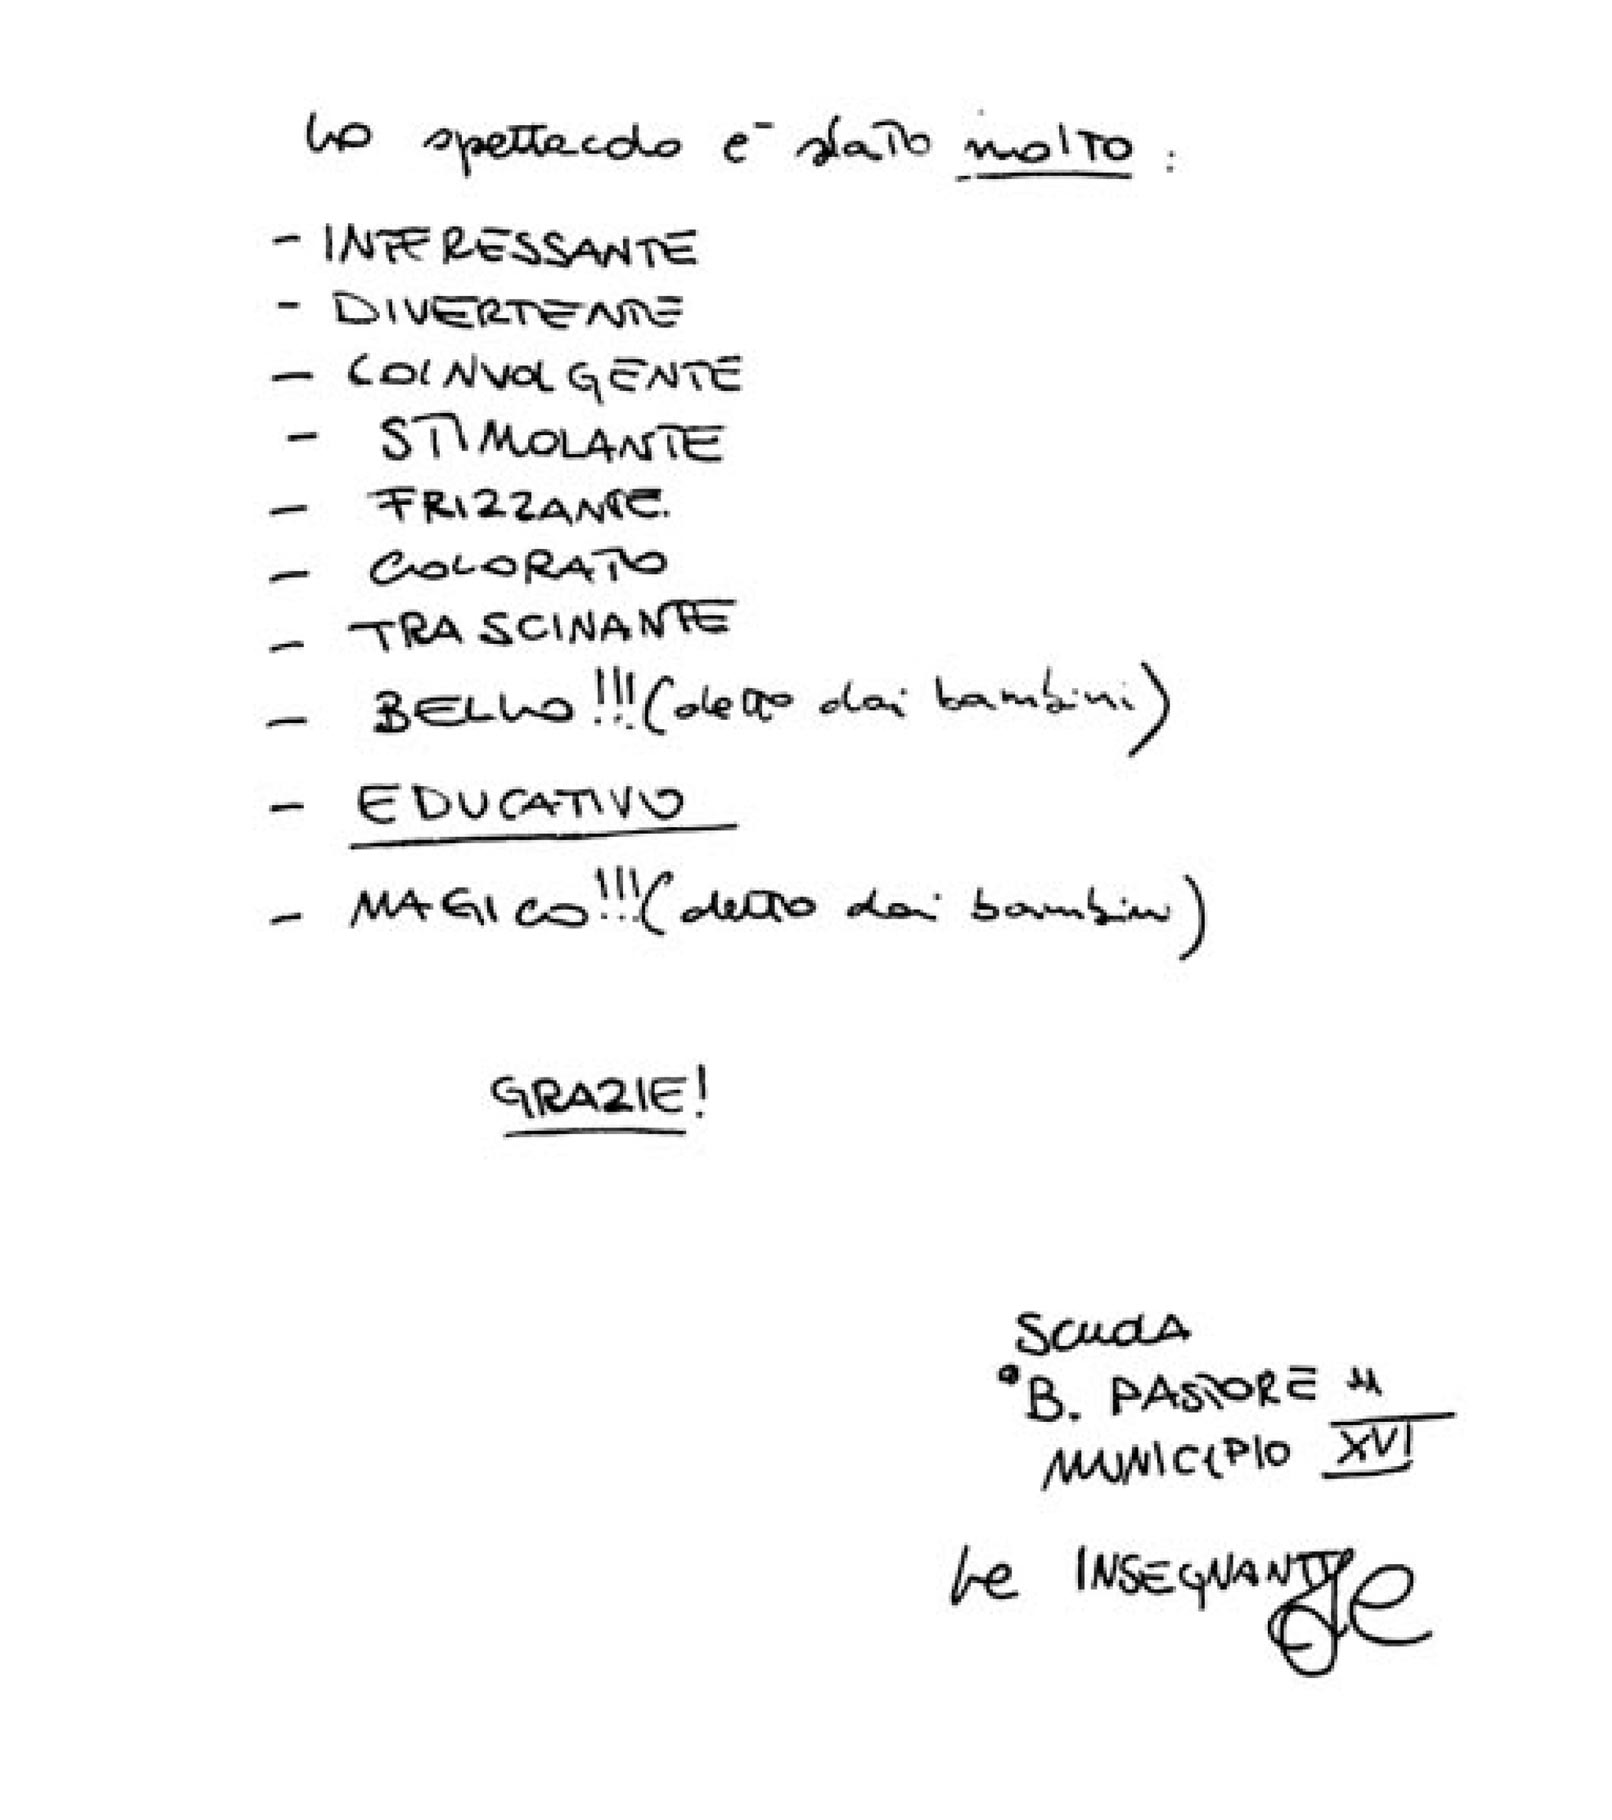 Lo spettacolo è stato molto:
- INTERESSANTE
- DIVERTENTE
- COINVOLGENTE
- STIMOLANTE
- FRIZZANTE
- COLORATO
- TRASCINANTE
- BELLO!!! (detto dai bambini)
- EDUCATIVO
- MAGICO!!! (detto dai bambini)
GRAZIE!
SCUOLA
"B. PASTORE"
MUNICIPIO XVI
Le INSEGNANTI